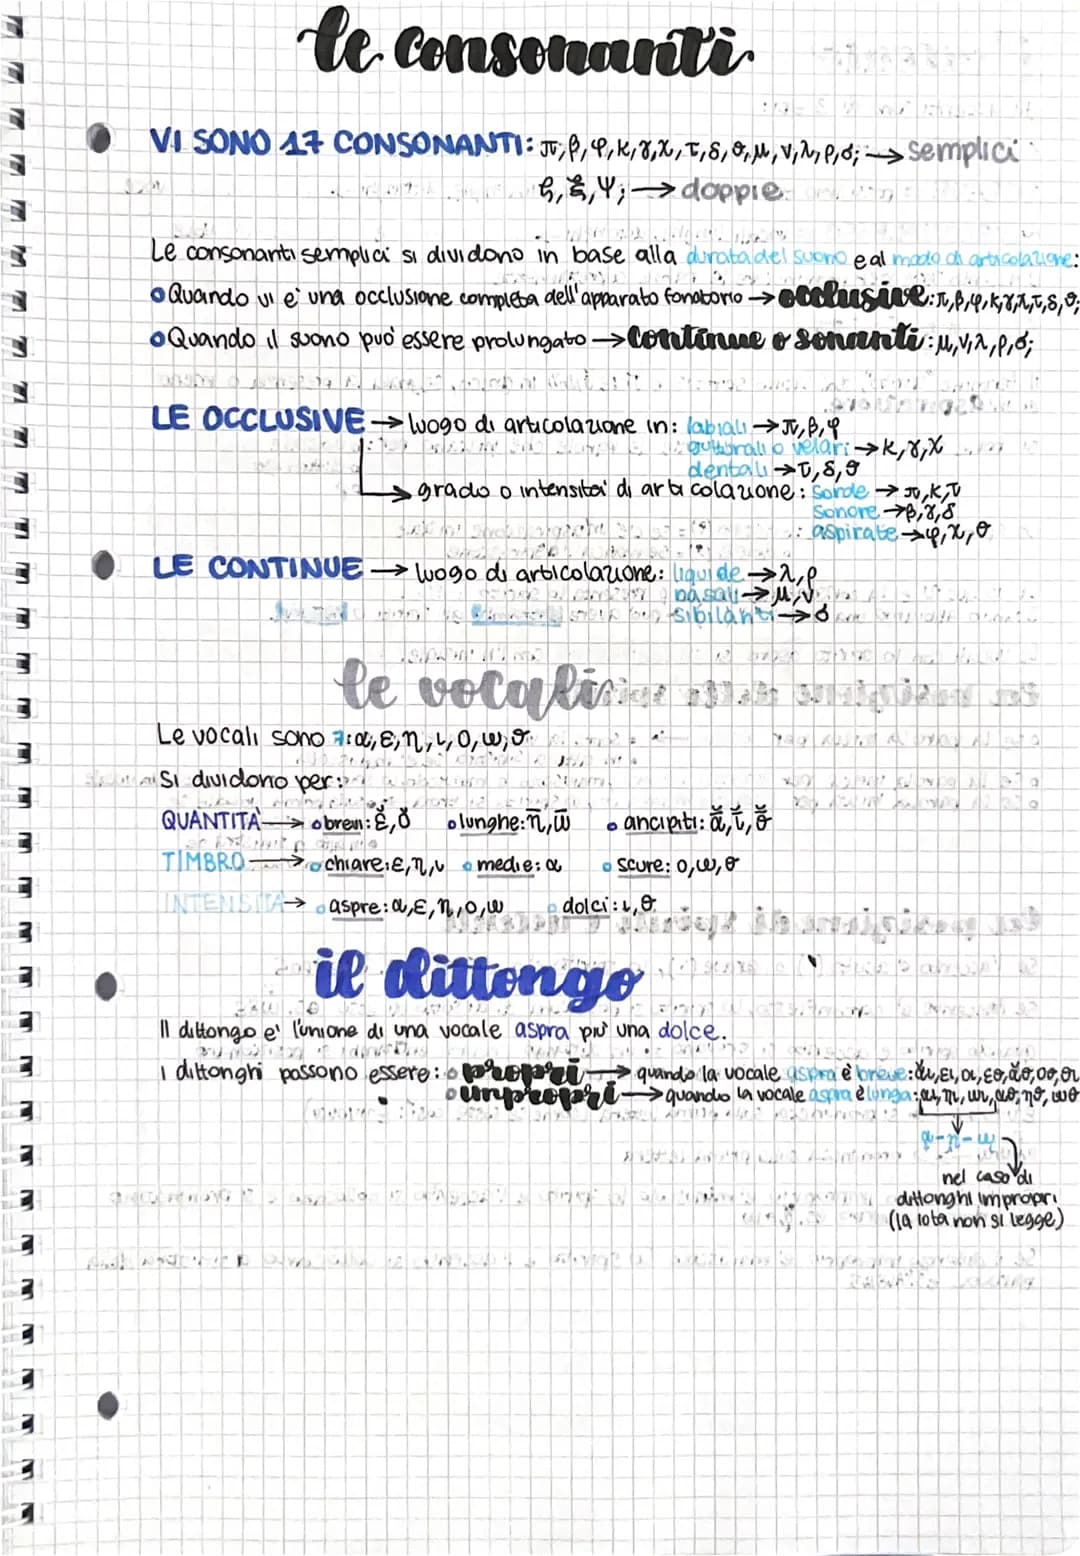 le consonanti
VI SONO 17 CONSONANTI: π, β, φ, κ, γ, χ, τ, δ, θ, μ, ν, λ, ρ, σ; → semplici
ζ, ξ, ψ; → doppie
Le consonanti semplici si dividono in base alla durata del suono e al modo di articolazione:
Quando vi e' una occlusione completa dell'apparato fonatorio → occlusive: π, β, φ, κ, γ, χ, τ, δ, θ;
Quando il suono puo' essere prolungato → continue o sonanti: μ, ν, λ, ρ, σ;
LE OCCLUSIVE → luogo di articolazione in: labiali → π, β, φ
gutturali o velari → κ, γ, χ
dentali → τ, δ, θ
→ grado o intensita' di articolazione: sorde → π, κ, τ
sonore → β, γ, δ
: aspirate → φ, χ, θ
LE CONTINUE → luogo di articolazione: liquide → λ, ρ
nasali → μ, ν
sibilanti → σ
le vocali
Le vocali sono 7: α, ε, η, ι, ο, ω, υ
Si dividono per:
QUANTITÀ → brevi: ε̆, ο̆ lunghe: η̄, ω̄ ancipiti: ᾱ̆, ῑ̆, ῡ̆
TIMBRO → chiare: ε, η, ι medie: α scure: ο, ω, υ
INTENSITÀ → aspre: α, ε, η, ο, ω dolci: ι, υ
il dittongo
Il dittongo e' l'unione di una vocale aspra piu' una dolce.
I dittonghi possono essere: propri → quando la vocale aspra è breve: ᾰι, ει, οι, ευ, ᾰυ, ου, υι
impropri → quando la vocale aspra è lunga: αι, ηι, ωι, αυ, ηυ, ωυ
ᾳ - ῃ - ῳ
nel caso di
dittonghi impropri
(la iota non si legge)